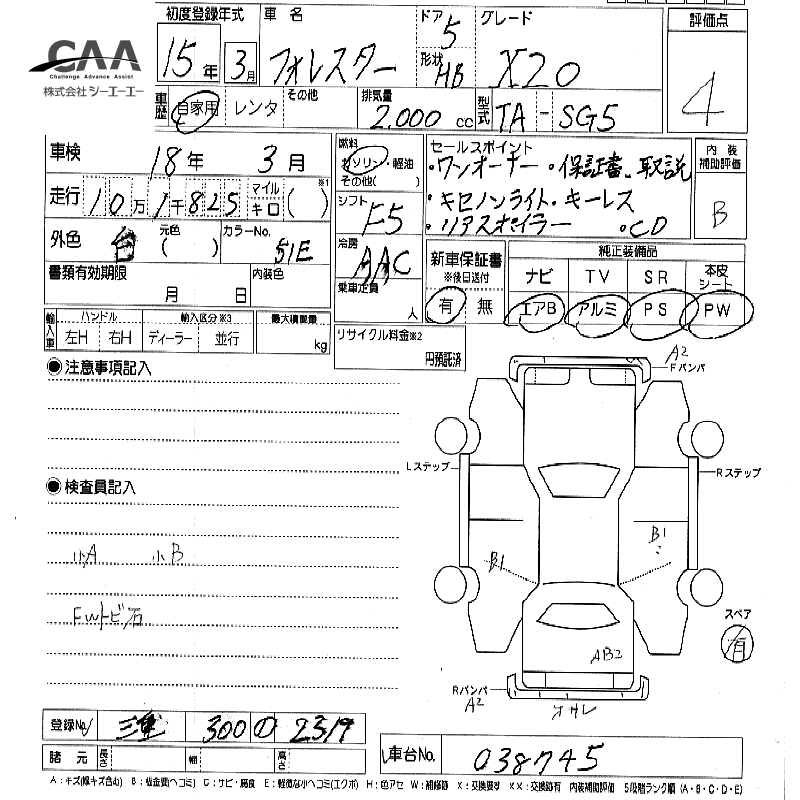 CAA
Challenge Advance Assist
株式会社 シーエーエー
初度登録年式 車名 ドア グレード 評価点
15年 3月 フォレスター 5 X20 4
形状 HB
車歴 自家用 レンタ その他 排気量 2.000cc 型式 TA - SG5
車検 18年 3月
燃料 ガソリン・軽油 その他( )
セールスポイント
・ワンオーナー ・保証書、取説
・キセノンライト・キーレス
・リアスポイラー ・CD
内装補助評価 B
走行 10万1千825 マイル キロ ( )※1
シフト F5
外色 元色( ) カラーNo. 51E
冷房 AAC
書類有効期限 月 日 内装色
乗車定員 人
新車保証書 ※後日送付 有 無
純正装備品
ナビ TV SR 本皮シート
エアB アルミ PS PW
輸入車 ハンドル 左H 右H 輸入区分※3 ディーラー 並行 最大積載量 kg
リサイクル料金※2 円預託済
●注意事項記入
A2
Fバンパ
Lステップ Rステップ
●検査員記入
小A 小B
B1 B1
FWトビ石
スペア 有
AB2
Rバンパ
A2 オサレ
登録No. 三重 300 の 2319
諸元 長さ 幅 高さ
車台No. 038745
A:キズ(線キズ含む) B:板金費(ヘコミ) C:サビ・腐食 E:軽微な小ヘコミ(エクボ) H:色アセ W:補修跡 X:交換要す XX:交換跡有 内装補助評価 5段階ランク順(A・B・C・D・E)